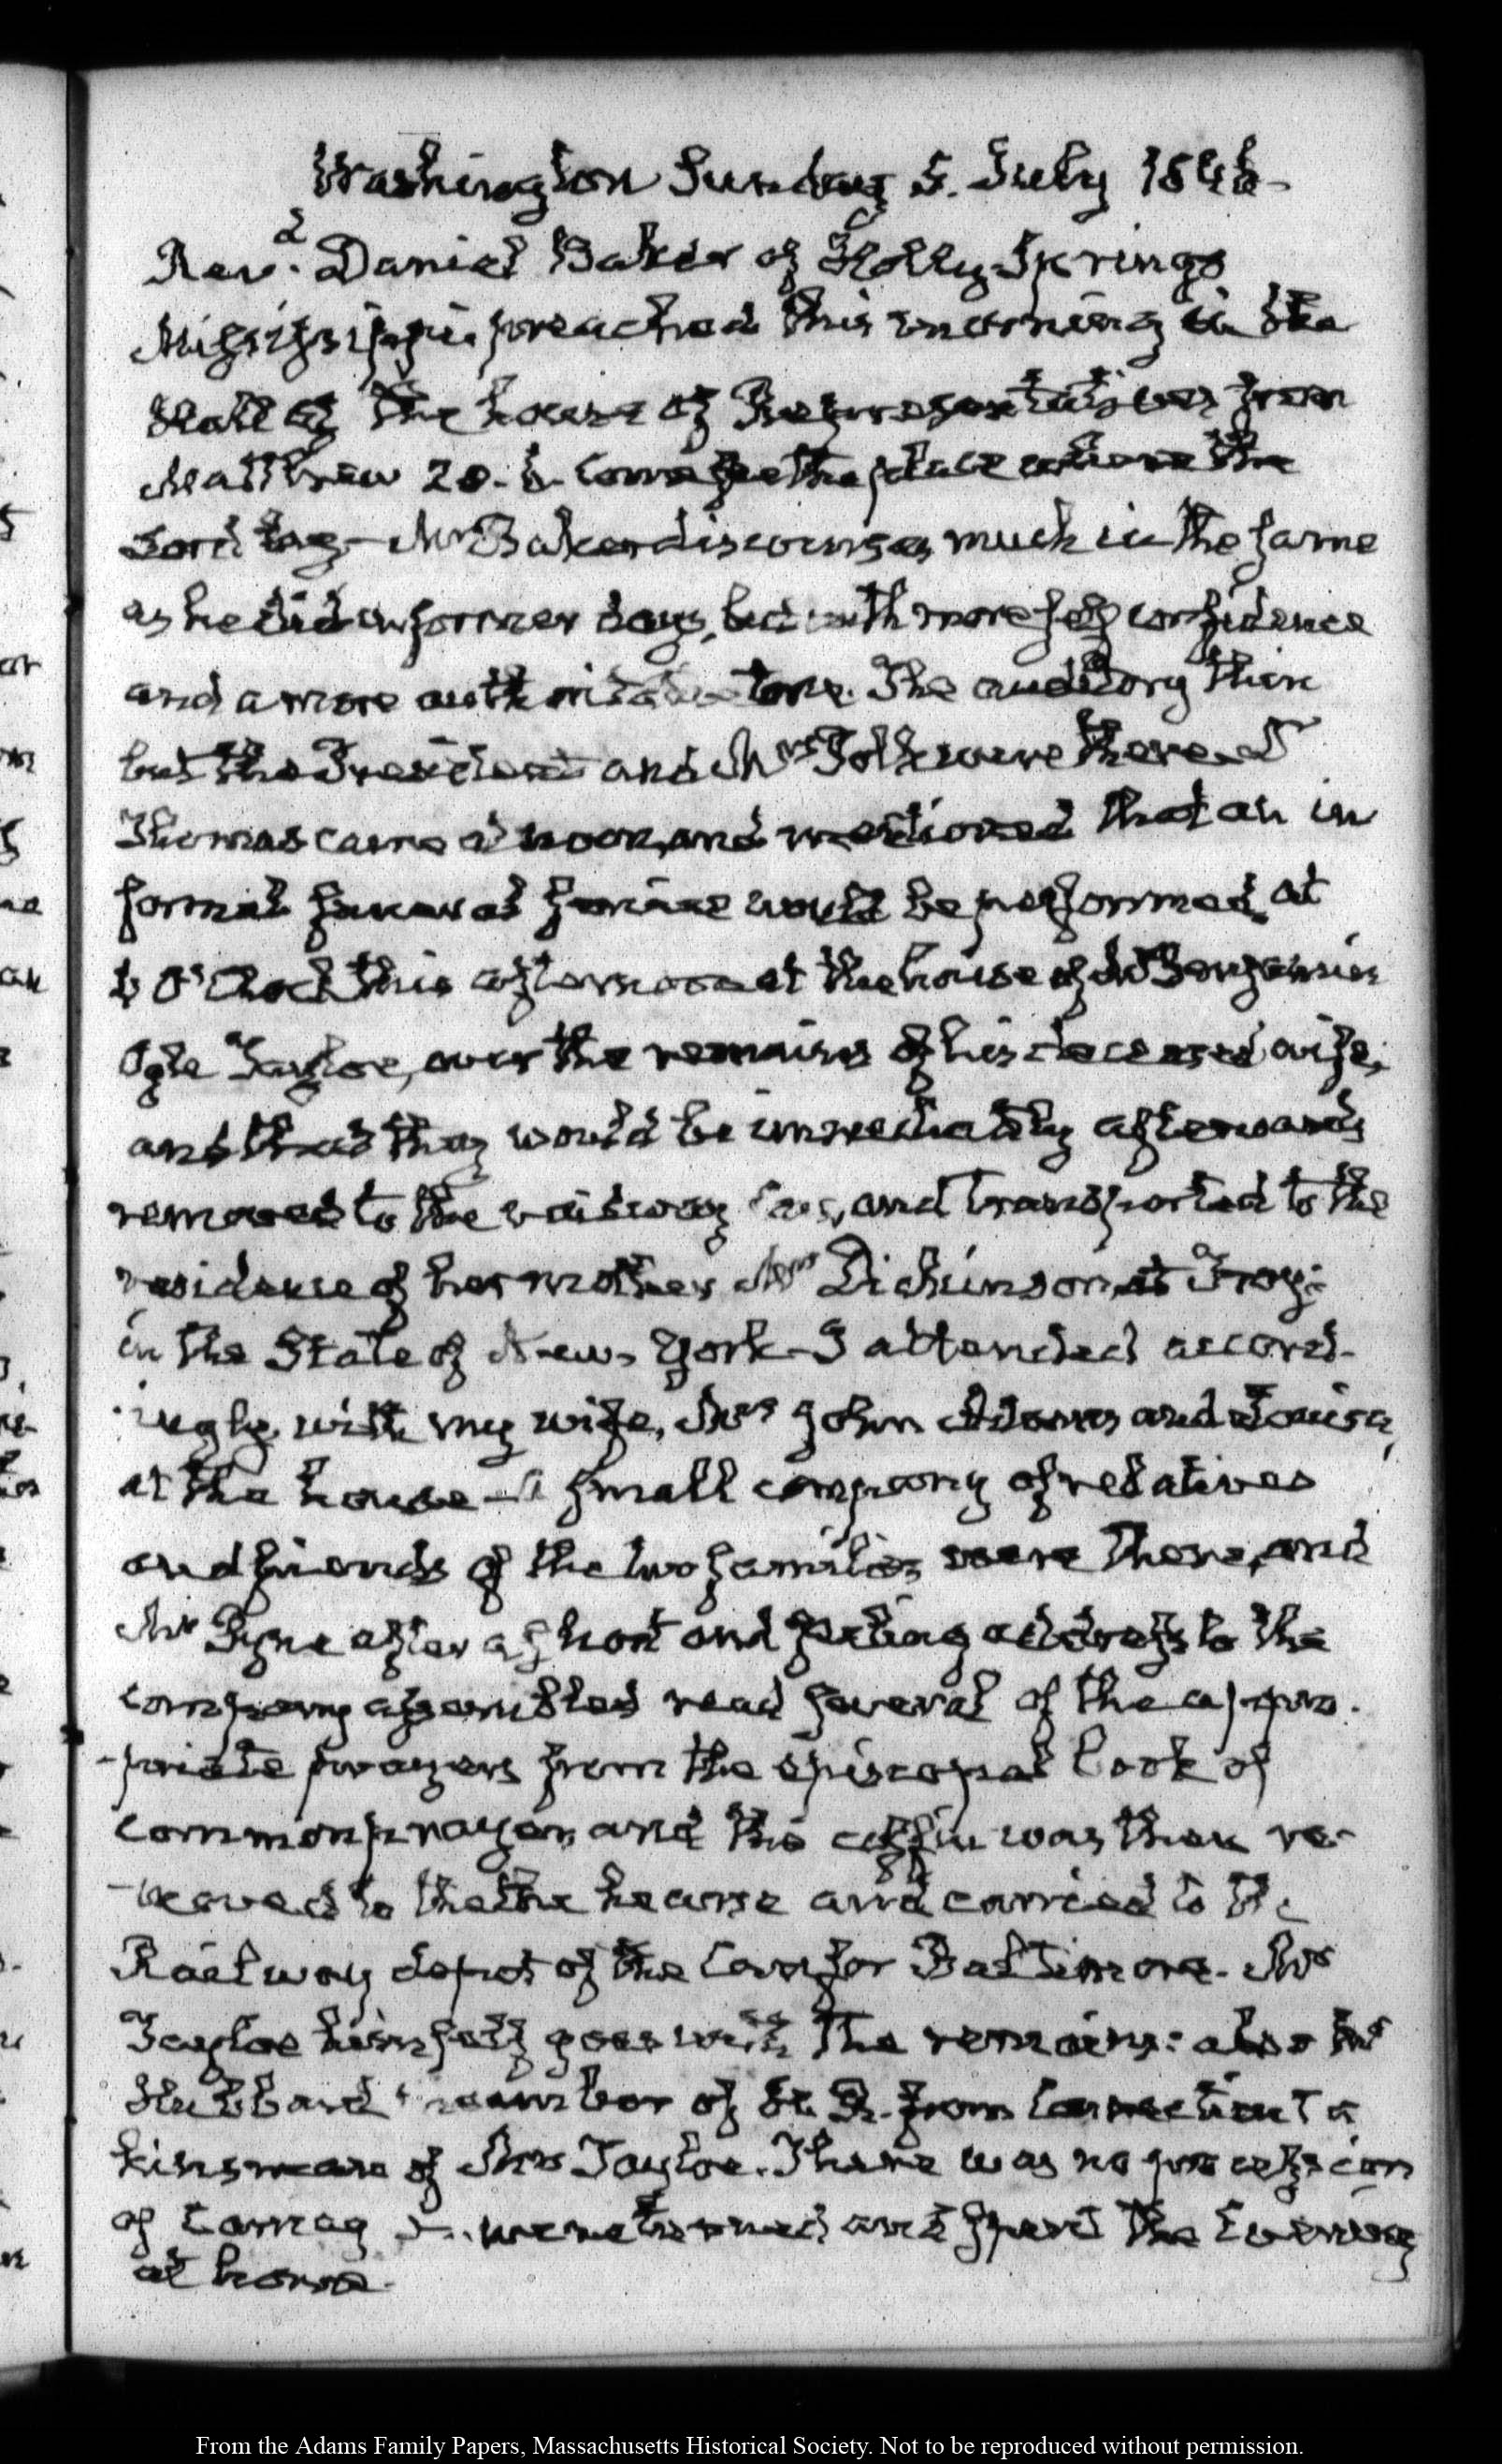 Washington Sunday 5. July 1846-
Revd. Daniel Baker of Holly Springs
Mississippi preached this morning in the
Hall of the house of Representatives from
Matthew 28. 6. Come see the place where the
Lord lay - Mr Baker discourses much in the same
as he did in former days, but with more self confidence
and a more authoritative tone. The auditory thin
but the President and Mrs Polk were there -
Thomas came at noon, and mentioned that an in
formal funeral service would be performed, at
6 O'Clock this afternoon at the house of Mr Benjamin
Ogle Tayloe, over the remains of his deceased wife,
and that they would be immediately afterwards
removed to the railway Cars, and transported to the
residence of her mother Mrs Dickinson, at Troy:
in the State of New-York - I attended accord-
-ingly, with my wife, Mrs John Adams and Louisa,
at the house - A small company of relatives
and friends of the two families were there, and
Mr Pyne after a short and feeling address to the
company assembled read several of the appro-
-priate prayers from the episcopal book of
common prayer, and the coffin was then re-
-moved to the the hearse and carried to the
Railway depot of the Cars for Baltimore. Mr
Tayloe himself goes with the remains: also Mr
Hubbard member of H. R. from Connecticut a
kinsman of Mrs Tayloe. There was no procession
of Carriag we returned and spent the Evening
at home.